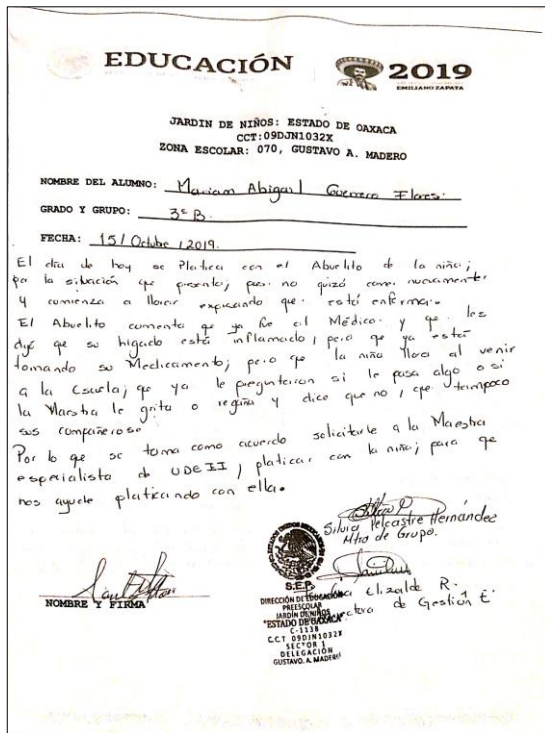 EDUCACIÓN
2019
EMILIANO ZAPATA
JARDIN DE NIÑOS: ESTADO DE OAXACA
CCT:09DJN1032X
ZONA ESCOLAR: 070, GUSTAVO A. MADERO
NOMBRE DEL ALUMNO: Mariam Abigail Guerrero Flores.
GRADO Y GRUPO: 3º B.
FECHA: 15/ Octubre /2019.
El día de hoy se Platica con el Abuelito de la niña;
por la situación que presento; pues no quizó comer nuevamente
y comienza a llorar expresando que está enferma.
El Abuelito comenta qe ya fue al Médico y que les
dijó que su higado está inflamado, pero que ya está
tomando su Medicamento; pero que la niña llora al venir
a la Escuela; que ya le preguntaron si le pasa algo o si
la Maestra le grita o regaña y dice que no, que tampoco
sus compañeros.
Por lo que se toma como acuerdo solicitarle a la Maestra
especialista de UDEII, platicar con la niña; para que
nos ayude platicando con ella.
Silvia Pelcastre Hernández
Mtra de Grupo.
Elizalde R.
Directora de Gestión E.
NOMBRE Y FIRMA
ESTADOS UNIDOS MEXICANOS
S.E.P.
DIRECCIÓN DE EDUCACIÓN
PREESCOLAR
JARDIN DE NIÑOS
"ESTADO DE OAXACA"
C-1138
CCT 09DJN1032X
SECTOR 1
DELEGACIÓN
GUSTAVO A. MADERO